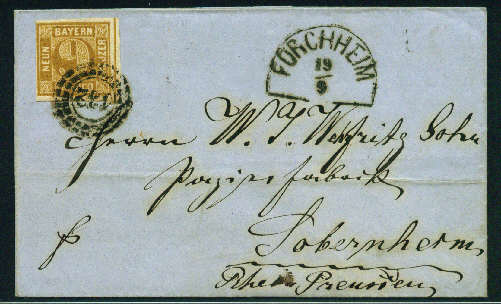 BAYERN
NEUN
KREUZER
9
FORCHHEIM
19
9
Herrn W. J. Sohn
Papierfabrik
Sobernheim
Rhein Preussen